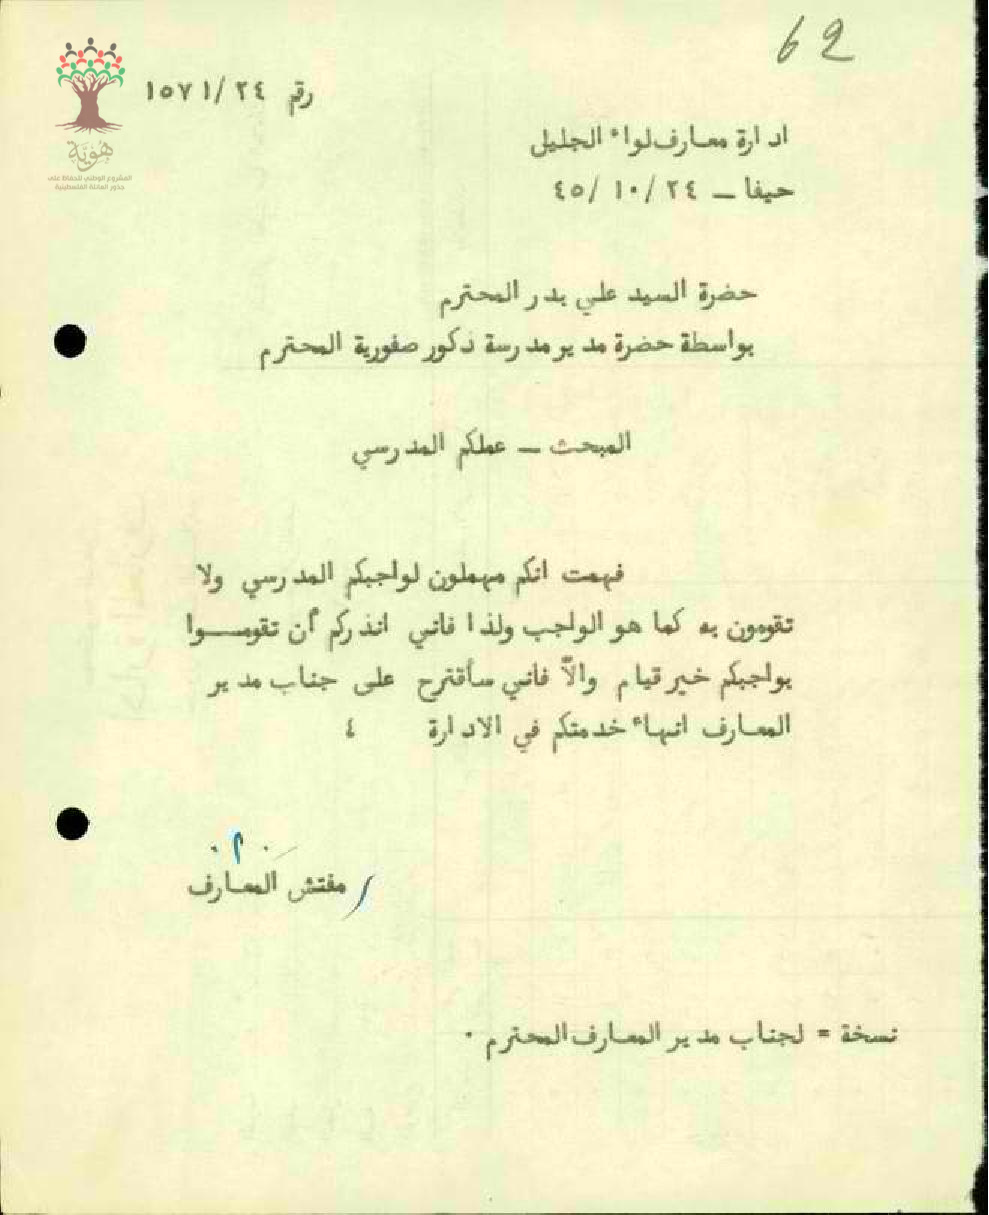 62
رقم ٢٤ /١٥٧١
هُوِيَّة
المشروع الوطني للحفاظ على
جذور العائلة الفلسطينية
ادارة معارف لواء الجليل
حيفا ــ ٢٤ /١٠ /٤٥
حضرة السيد علي بدر المحترم
بواسطة حضرة مدير مدرسة ذكور صفورية المحترم
المبحث ــ عملكم المدرسي
فهمت انكم مهملون لواجبكم المدرسي ولا
تقومون به كما هو الواجب ولذا فاني انذركم أن تقومــــوا
بواجبكم خير قيام والاّ فاني سأقترح على جناب مدير
المعارف انهاء خدمتكم في الادارة ٤
مفتش المعارف
نسخة = لجناب مدير المعارف المحترم ٠